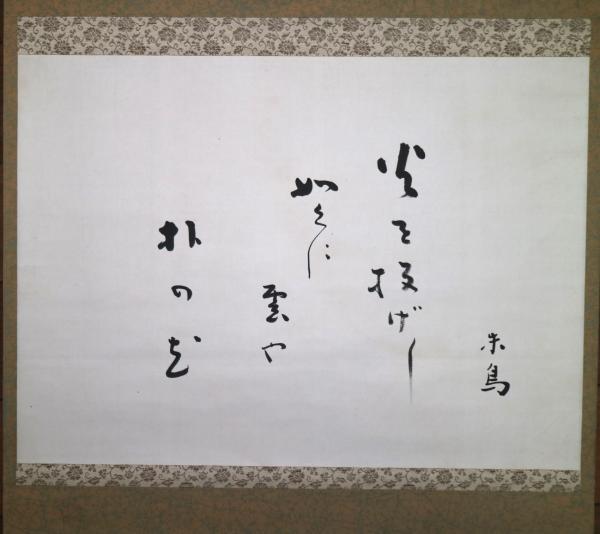 朱鳥
火を投げし
如くに
雲や
朴の花